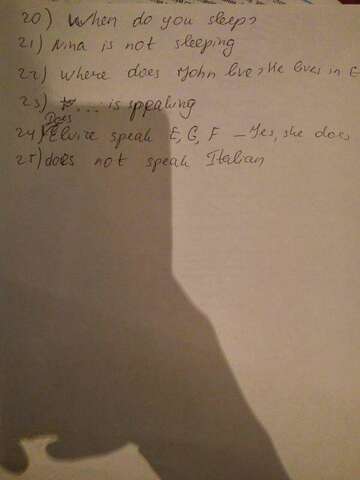 20) When do you sleep?
21) Nina is not sleeping
22) Where does John live? He lives in E
23) ... is speaking
Does
24) Elvire speak E, G, F – Yes, she does
25) does not speak Italian